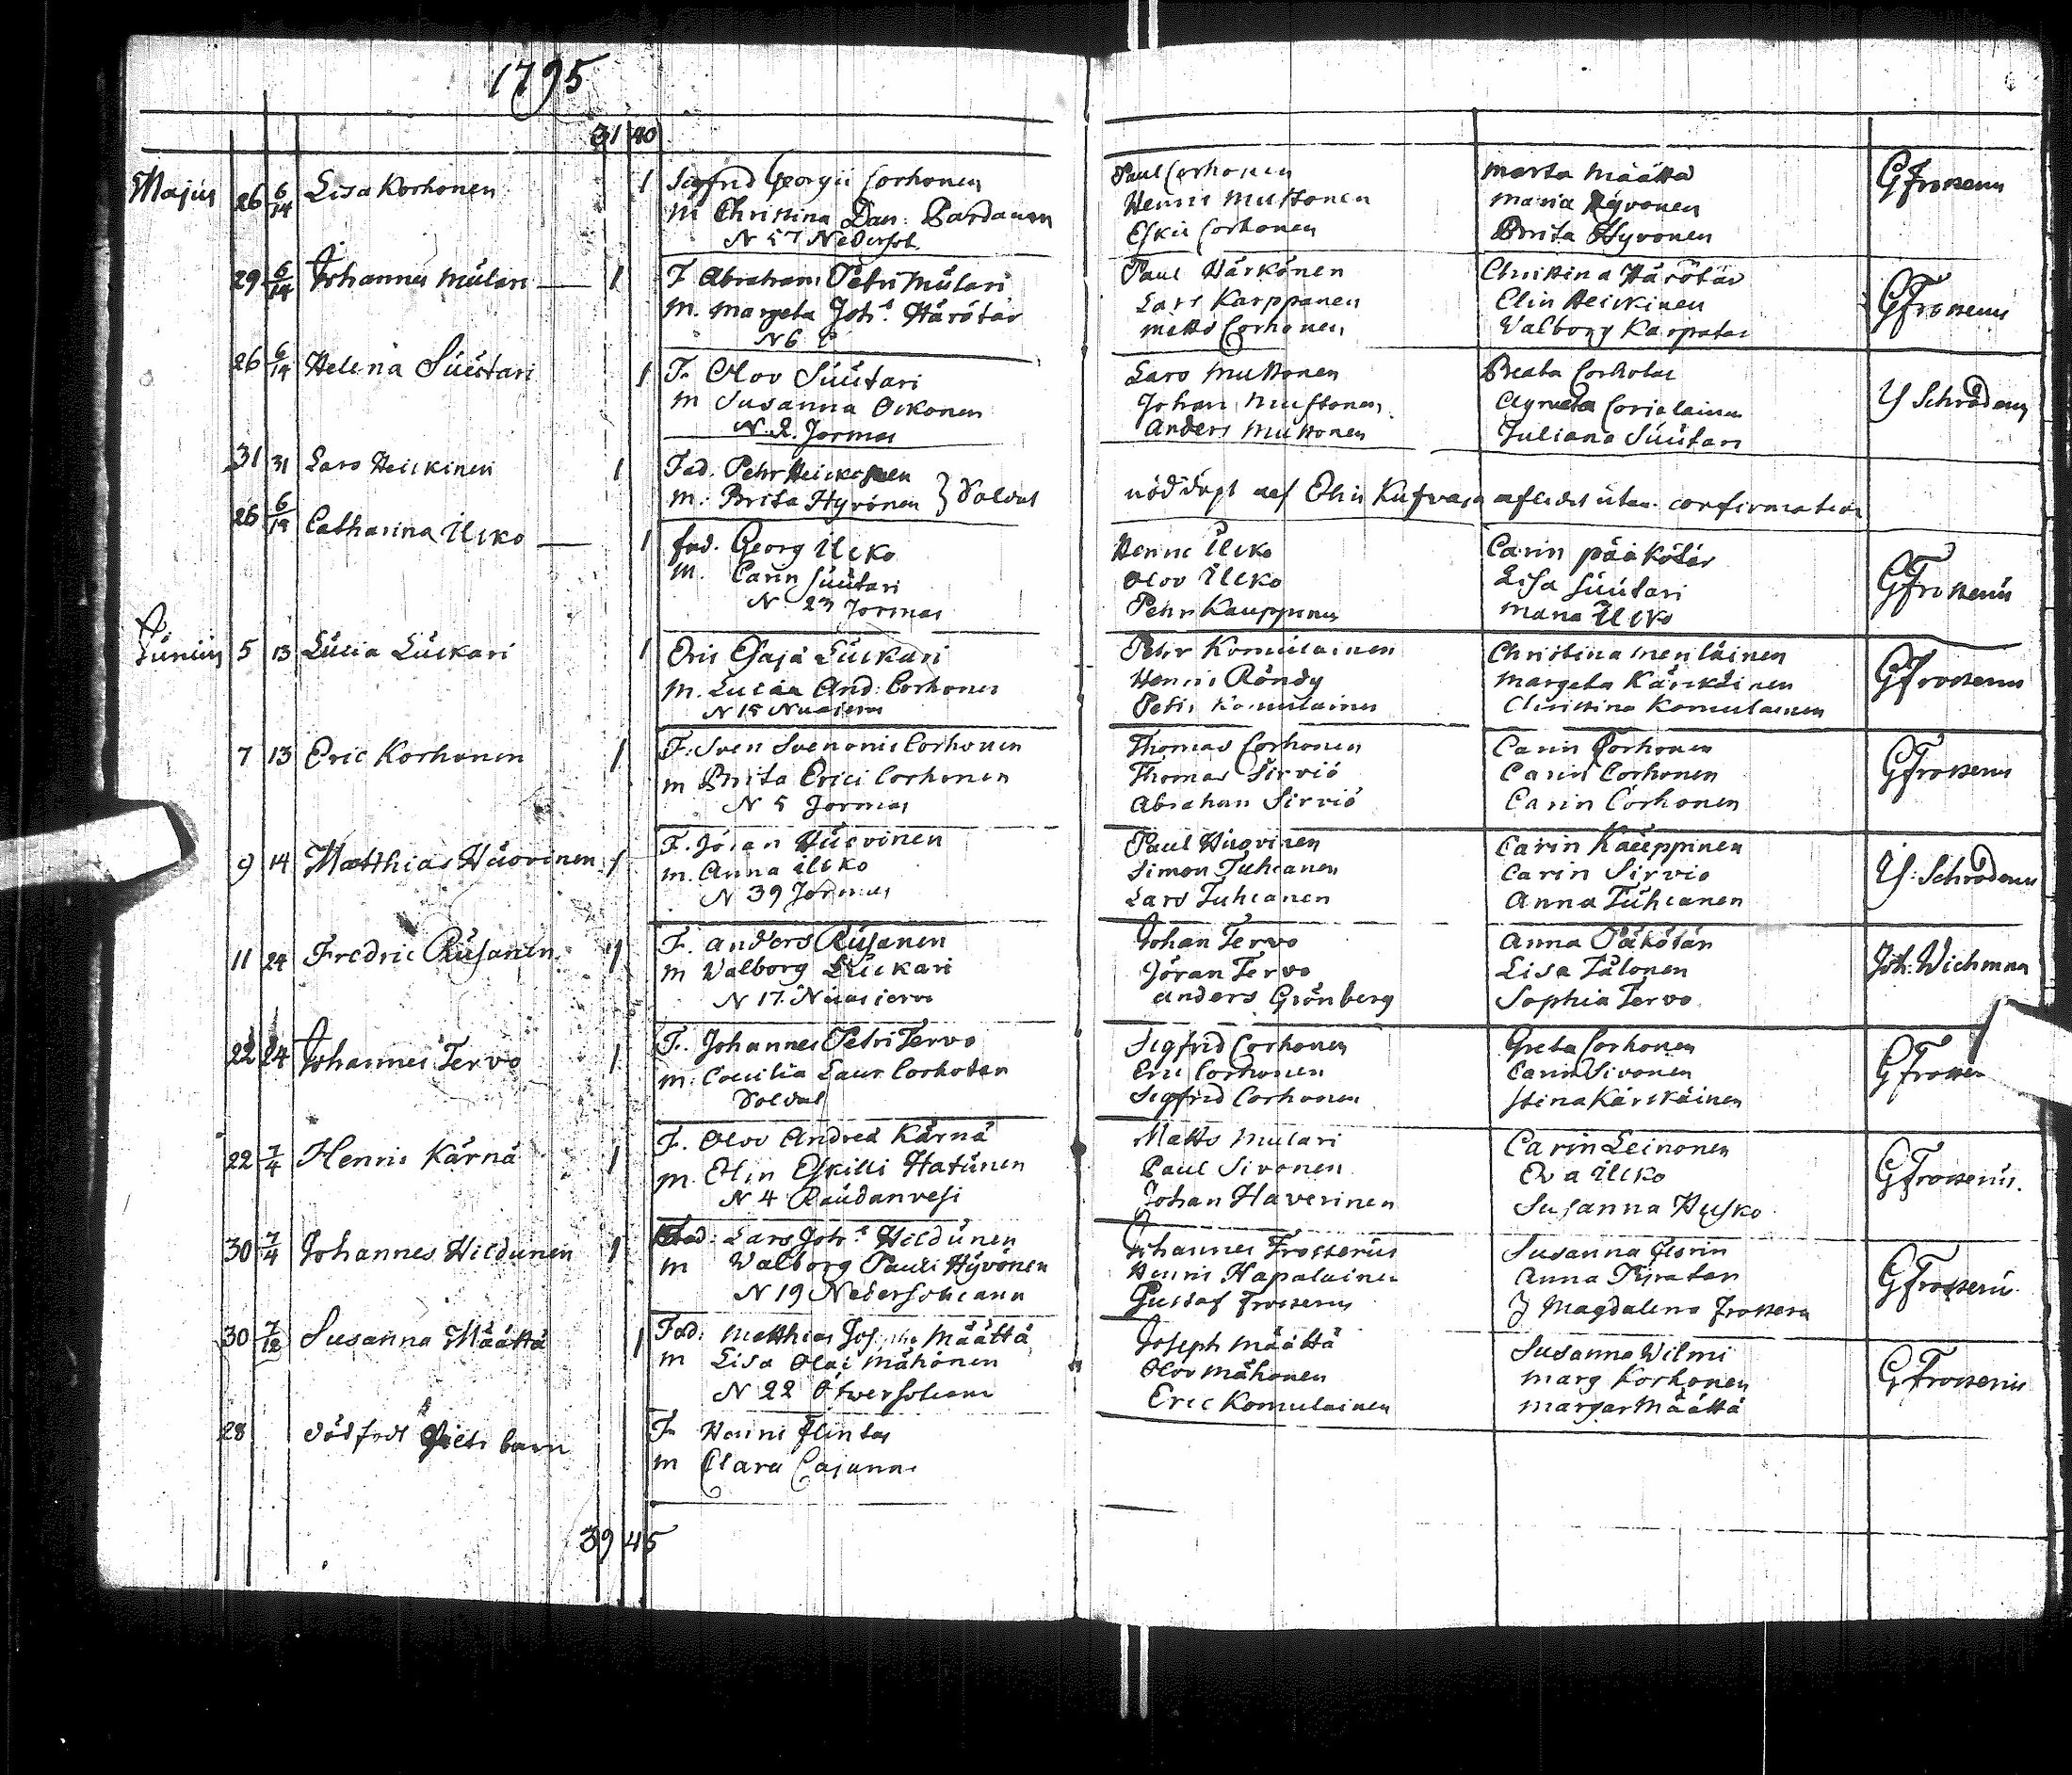 1795
31 40
Majus 26 6/14 Lisa Korhonen 1 Sigfrid Georgii Corhonen Paul Corhonen Marta Määttä GFrosserus
m Christina Dan: Pardanen Henric Muttonen Maria Hyvonen
N 57 Nedersot. Eskil Corhonen Brita Hyvonen
29 6/14 Johannes Mulari 1 F Abraham Petri Mulari Paul Härkönen Christina Härötär GFrosserus
M. Margeta Joh:s Härötär Lars Karppanen Elin Heickinen
N 6 Matts Corhonen Walborg Karpatar
26 6/14 Helena Suutari 1 F. Olov Suutari Lars Muttonen Beata Corhotar Schroderus
m Susanna Oikonen Johan Muttonen Agneta Corialainen
N. 2. Jormas Anders Muttonen Juliana Suutari
31 31 Lars Heickinen 1 Fad. Pehr Heickinen
M: Brita Hyvönen } Soldat nöddöpt af Elin Kufvaja aflidet utan confirmation
26 6/14 Catharina Ilcko 1 fad. Georg Ilcko Henric Ilcko Carin pääkötär GFrosserus
M. Carin Suutari Olov Ilcko Lisa Suutari
N 23 Jormas Pehr Kauppinen Maria Ilcko
Junius 5 13 Lucia Luckari 1 Eric Esajä Luckari Petr Komulainen Christina Meriläinen GFrosserus
M. Lucia And: Corhonen Henric Röndy Margeta Kärckäinen
N 15 Nuasjervi Petri Komulainen Christina Komulainen
7 13 Eric Korhonen 1 F: Sven Svenonis Corhonen Thomas Corhonen Carin Corhonen GFrosserus
m Brita Erici Corhonen Thomas Sirviö Carin Corhonen
N 5 Jormas Abraham Sirviö Carin Corhonen
9 14 Matthias Huovinen 1 F. Jöran Huovinen Paul Huovinen Carin Kauppinen Schroderus
m. Anna Ilcko Simon Tuhcanen Carin Sirvio
N 39 Jormas Lars Tuhcanen Anna Tuhcanen
11 24 Fredric Rusanen 1 F. Anders Rusanen Johan Tervo Anna Päkötär Joh: Wichman
m Walborg Luckari Jöran Tervo Lisa Tälonen
N 17. Nuasiervi Anders Grönberg Sophia Tervo
22 24 Johannes Tervo 1 F. Johannes Petri Tervo Sigfrid Corhonen Greta Corhonen GFrosser
m: Coecilia Laur Corhotar Eric Corhonen Carin Sivonen
Soldat Sigfrid Corhonen Stina Kärckäinen
22 7/4 Henric Kärnä 1 F. Olov Andreä Kärnä Matts Mulari Carin Leinonen GFrosserus.
m. Elin Eskilli Hatunen Paul Sivonen Eva Ilcko
N 4 Raudanvesi Johan Haverinen Susanna Husko
30 7/4 Johannes Hildunen 1 Fad: Lars Joh:s Hildunen Johannes Frosserus Susanna GFrosserus
m Walborg Pauli Hyvönen Henric Hapalainen Anna
N 19 Nedersotcamo Gustaf Frosserus J Magdalena Frossera
30 7/12 Susanna Määttä 1 Fad: Matthias Josephi Määttä Joseph Määttä Susanna Wilmi GFrosserus
m Lisa Olai Mähönen Olov Mähonen Marg Korhonen
N 22 Öfwersotcamo Eric Komulainen Margar Määttä
28 dödfödt barn F. Henric Flintas
m Clara Cajanus
39 45